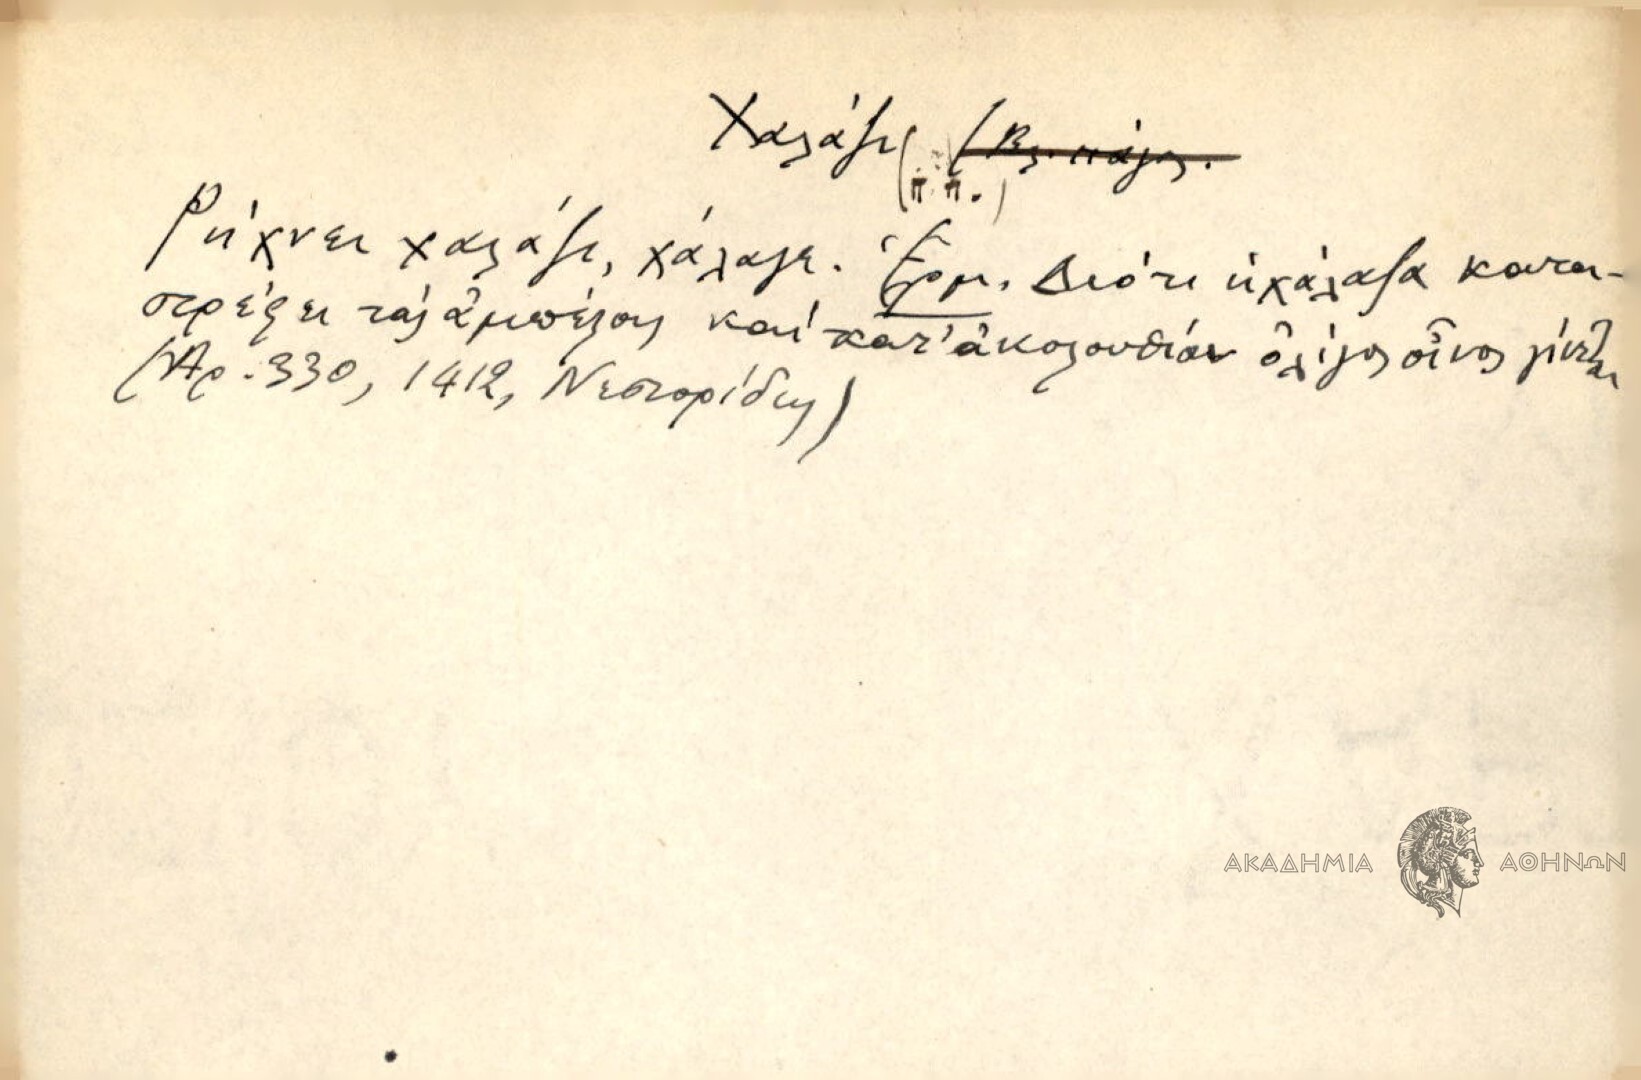 Χαλάζι (π.π.) (Βλ. πάγος.
Ρήχνει χαλάζι, χάλασε. Ἑρμ. Διότι ἡ χάλαζα κατα-
στρέφει τὰς ἀμπέλους καὶ κατ' ἀκολουθίαν ὀλίγος οἶνος γίνεται
(Ἀρ. 330, 1412, Νεστορίδης)
ΑΚΑΔΗΜΙΑ ΑΘΗΝΩΝ